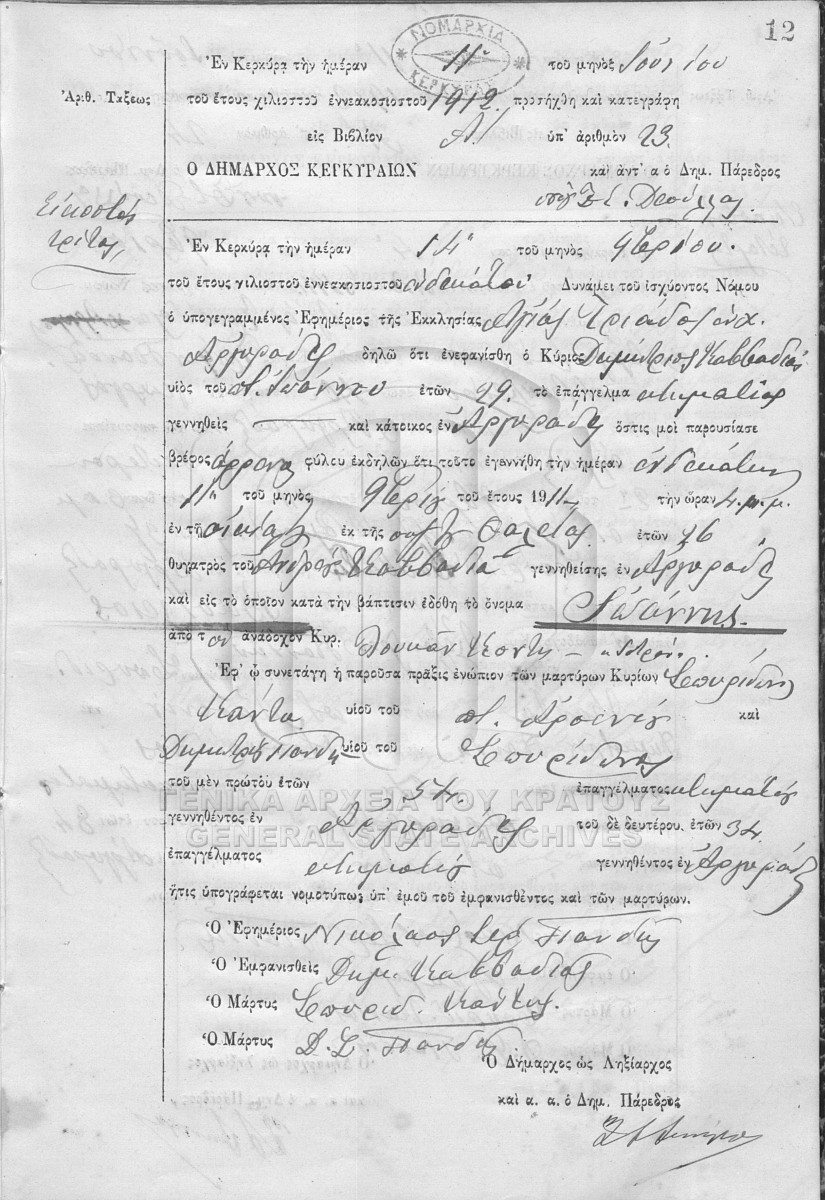 12
ΝΟΜΑΡΧΙΑ ΚΕΡΚΥΡΑΣ
Ἐν Κερκύρᾳ τὴν ἡμέραν 11η τοῦ μηνὸς Ἰουνίου
Ἀριθ. Τάξεως
τοῦ ἔτους χιλιοστοῦ ἐννεακοσιοστοῦ 1912 προσήχθη καὶ κατεγράφη
εἰς Βιβλίον Α' ὑπ' ἀριθμὸν 23.
Ο ΔΗΜΑΡΧΟΣ ΚΕΡΚΥΡΑΙΩΝ
καὶ ἀντ' α ὁ Δημ. Πάρεδρος
Εἰκοστὸς
τρίτος
Ἐν Κερκύρᾳ τὴν ἡμέραν 14η τοῦ μηνὸς 9βρίου.
τοῦ ἔτους χιλιοστοῦ ἐννεακοσιοστοῦ ἑνδεκάτου Δυνάμει τοῦ ἰσχύοντος Νόμου
ὁ ὑπογεγραμμένος Ἐφημέριος τῆς Ἐκκλησίας Ἁγίας Τριάδος
Ἀργυράδες δηλῶ ὅτι ἐνεφανίσθη ὁ Κύριος Δημήτριος Καββαδίας
υἱὸς τοῦ π. Ἰωάννου ἐτῶν 29. τὸ ἐπάγγελμα κτηματίας
γεννηθεὶς καὶ κάτοικος ἐν Ἀργυράδες ὅστις μοὶ παρουσίασε
βρέφος ἄρρενος φύλου ἐκδηλῶν ὅτι τοῦτο ἐγεννήθη τὴν ἡμέραν ἑνδεκάτην
11η τοῦ μηνὸς 9βρίου τοῦ ἔτους 1911 τὴν ὥραν 4 μ.μ.
ἐν τῇ οἰκίᾳ ἐκ τῆς συζύγου Θαλείας ἐτῶν 26
θυγατρὸς τοῦ Ἀνδρέου Καββαδία γεννηθείσης ἐν Ἀργυράδες
καὶ εἰς τὸ ὁποῖον κατὰ τὴν βάπτισιν ἐδόθη τὸ ὄνομα Ἰωάννης.
ἀπὸ τὸν ἀνάδοχον Κυρ. Λουκᾶν Κάντη
Ἐφ' ᾧ συνετάγη ἡ παροῦσα πρᾶξις ἐνώπιον τῶν μαρτύρων Κυρίων Σπυρίδωνος
Κάντα υἱοῦ τοῦ π. Ἀρσενίου καὶ
Δημητρίου Πανδῆ υἱοῦ τοῦ Σπυρίδωνος
τοῦ μὲν πρώτου ἐτῶν 54. ἐπαγγέλματος κτηματίου
ΓΕΝΙΚΑ ΑΡΧΕΙΑ ΤΟΥ ΚΡΑΤΟΥΣ
γεννηθέντος ἐν Ἀργυράδες τοῦ δὲ δευτέρου. ἐτῶν 34.
GENERAL STATE ARCHIVES
ἐπαγγέλματος κτηματίου γεννηθέντος ἐν Ἀργυράδες
ἥτις ὑπογράφεται νομοτύπως ὑπ' ἐμοῦ τοῦ ἐμφανισθέντος καὶ τῶν μαρτύρων.
Ὁ Ἐφημέριος Νικόλαος Ἱερ. Πανδῆς
Ὁ Ἐμφανισθεὶς Δημ. Καββαδίας
Ὁ Μάρτυς Σπυρίδ. Κάντας.
Ὁ Μάρτυς Δ. Σ. Πανδῆς
Ὁ Δήμαρχος ὡς Ληξίαρχος
καὶ α. α. ὁ Δημ. Πάρεδρος